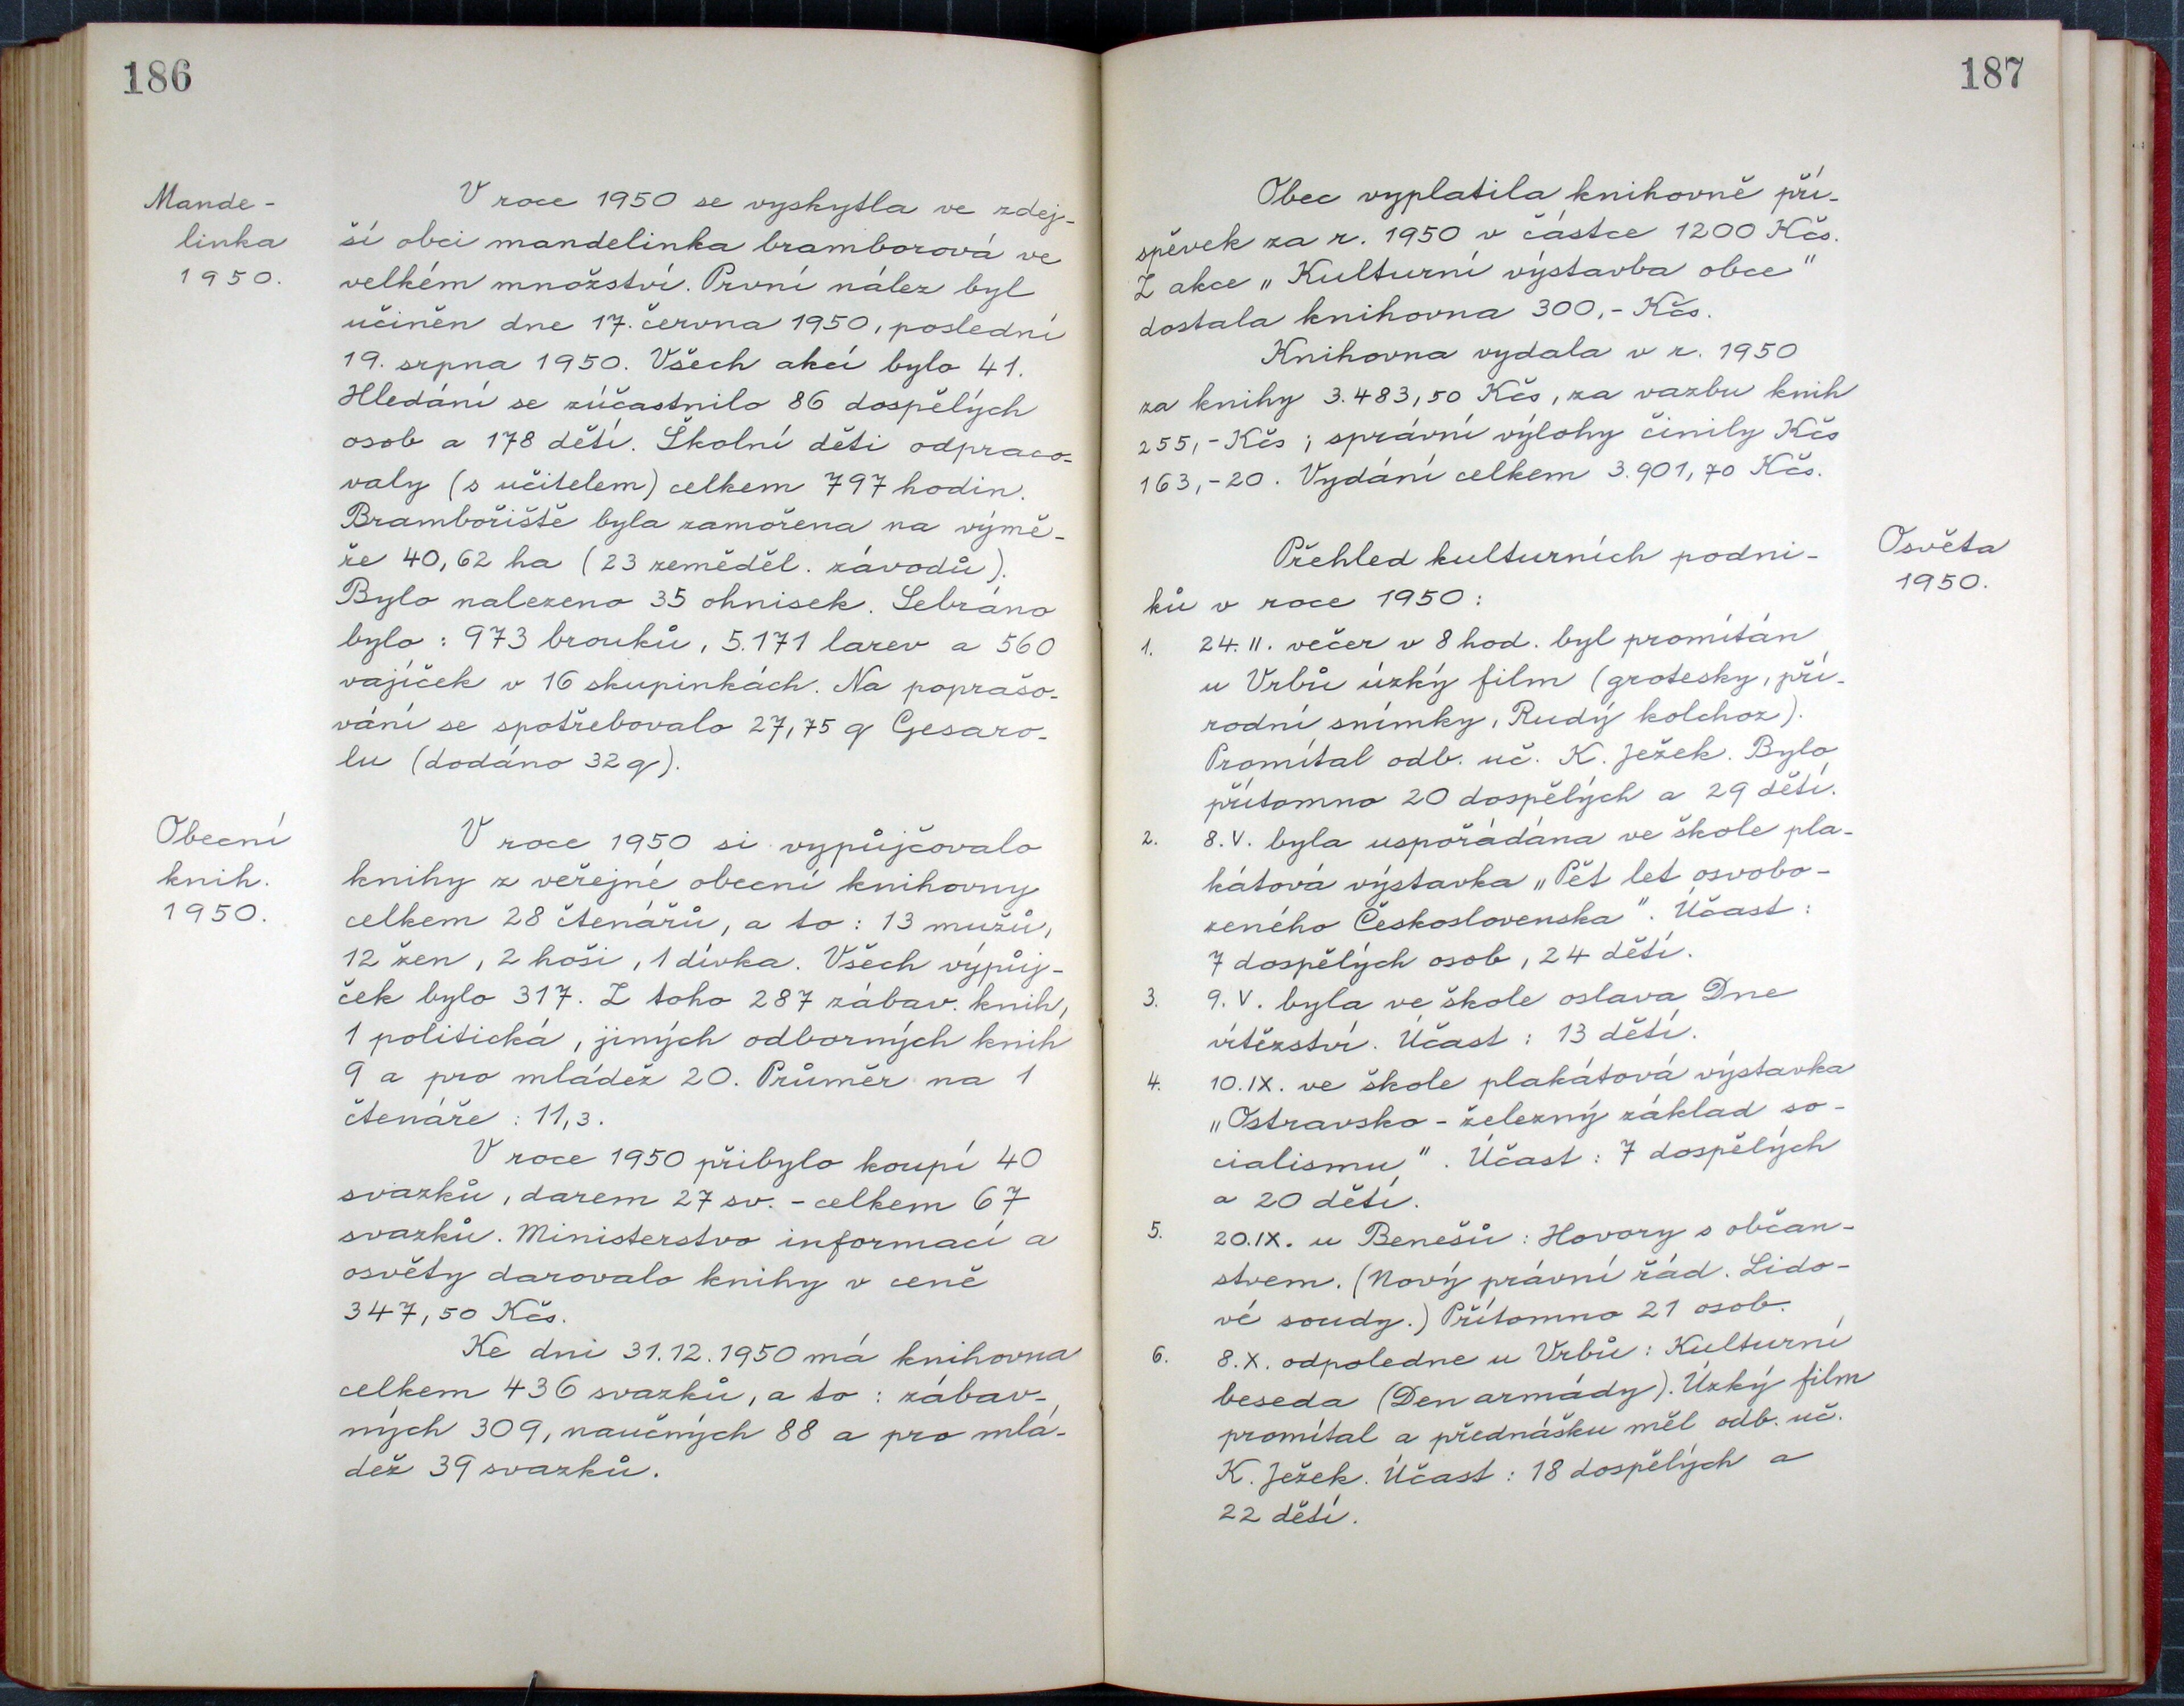 186
Mande-
linka
1950.
V roce 1950 se vyskytla ve zdej-
ší obci mandelinka bramborová ve
velkém množství. První nález byl
učiněn dne 17. června 1950, poslední
19. srpna 1950. Všech akcí bylo 41.
Hledání se zúčastnilo 86 dospělých
osob a 178 dětí. Školní děti odpraco-
valy (s učitelem) celkem 797 hodin.
Brambořiště byla zamořena na výmě-
ře 40,62 ha (23 zeměděl. závodů).
Bylo nalezeno 35 ohnisek. Sebráno
bylo: 973 brouků, 5.171 larev a 560
vajíček v 16 skupinkách. Na poprašo-
vání se spotřebovalo 27,75 q Gesaro-
lu (dodáno 32 q).
Obecní
knih.
1950.
V roce 1950 si vypůjčovalo
knihy z veřejné obecní knihovny
celkem 28 čtenářů, a to: 13 mužů,
12 žen, 2 hoši, 1 dívka. Všech výpůj-
ček bylo 317. Z toho 287 zábav. knih,
1 politická, jiných odborných knih
9 a pro mládež 20. Průměr na 1
čtenáře: 11,3.
V roce 1950 přibylo koupí 40
svazků, darem 27 sv. - celkem 67
svazků. Ministerstvo informací a
osvěty darovalo knihy v ceně
347,50 Kčs.
Ke dni 31.12.1950 má knihovna
celkem 436 svazků, a to: zábav-
ných 309, naučných 88 a pro mlá-
dež 39 svazků.
187
Obec vyplatila knihovně pří-
spěvek za r. 1950 v částce 1200 Kčs.
Z akce „Kulturní výstavba obce"
dostala knihovna 300,- Kčs.
Knihovna vydala v r. 1950
za knihy 3.483,50 Kčs, za vazbu knih
255,- Kčs; správní výlohy činily Kčs
163,-20. Vydání celkem 3.901,70 Kčs.
Osvěta
1950.
Přehled kulturních podni-
ků v roce 1950:
1. 24. II. večer v 8 hod. byl promítán
u Vrbů úzký film (grotesky, pří-
rodní snímky, Rudý kolchoz).
Promítal odb. uč. K. Ježek. Bylo
přítomno 20 dospělých a 29 dětí.
2. 8. V. byla uspořádána ve škole pla-
kátová výstavka „Pět let osvobo-
zeného Československa". Účast:
7 dospělých osob, 24 dětí.
3. 9. V. byla ve škole oslava Dne
vítězství. Účast: 13 dětí.
4. 10. IX. ve škole plakátová výstavka
„Ostravsko - železný základ so-
cialismu". Účast: 7 dospělých
a 20 dětí.
5. 20. IX. u Benešů: Hovory s občan-
stvem. (Nový právní řád. Lido-
vé soudy.) Přítomno 21 osob.
6. 8. X. odpoledne u Vrbů: Kulturní
beseda (Den armády). Úzký film
promítal a přednášku měl odb. uč.
K. Ježek. Účast: 18 dospělých a
22 dětí.